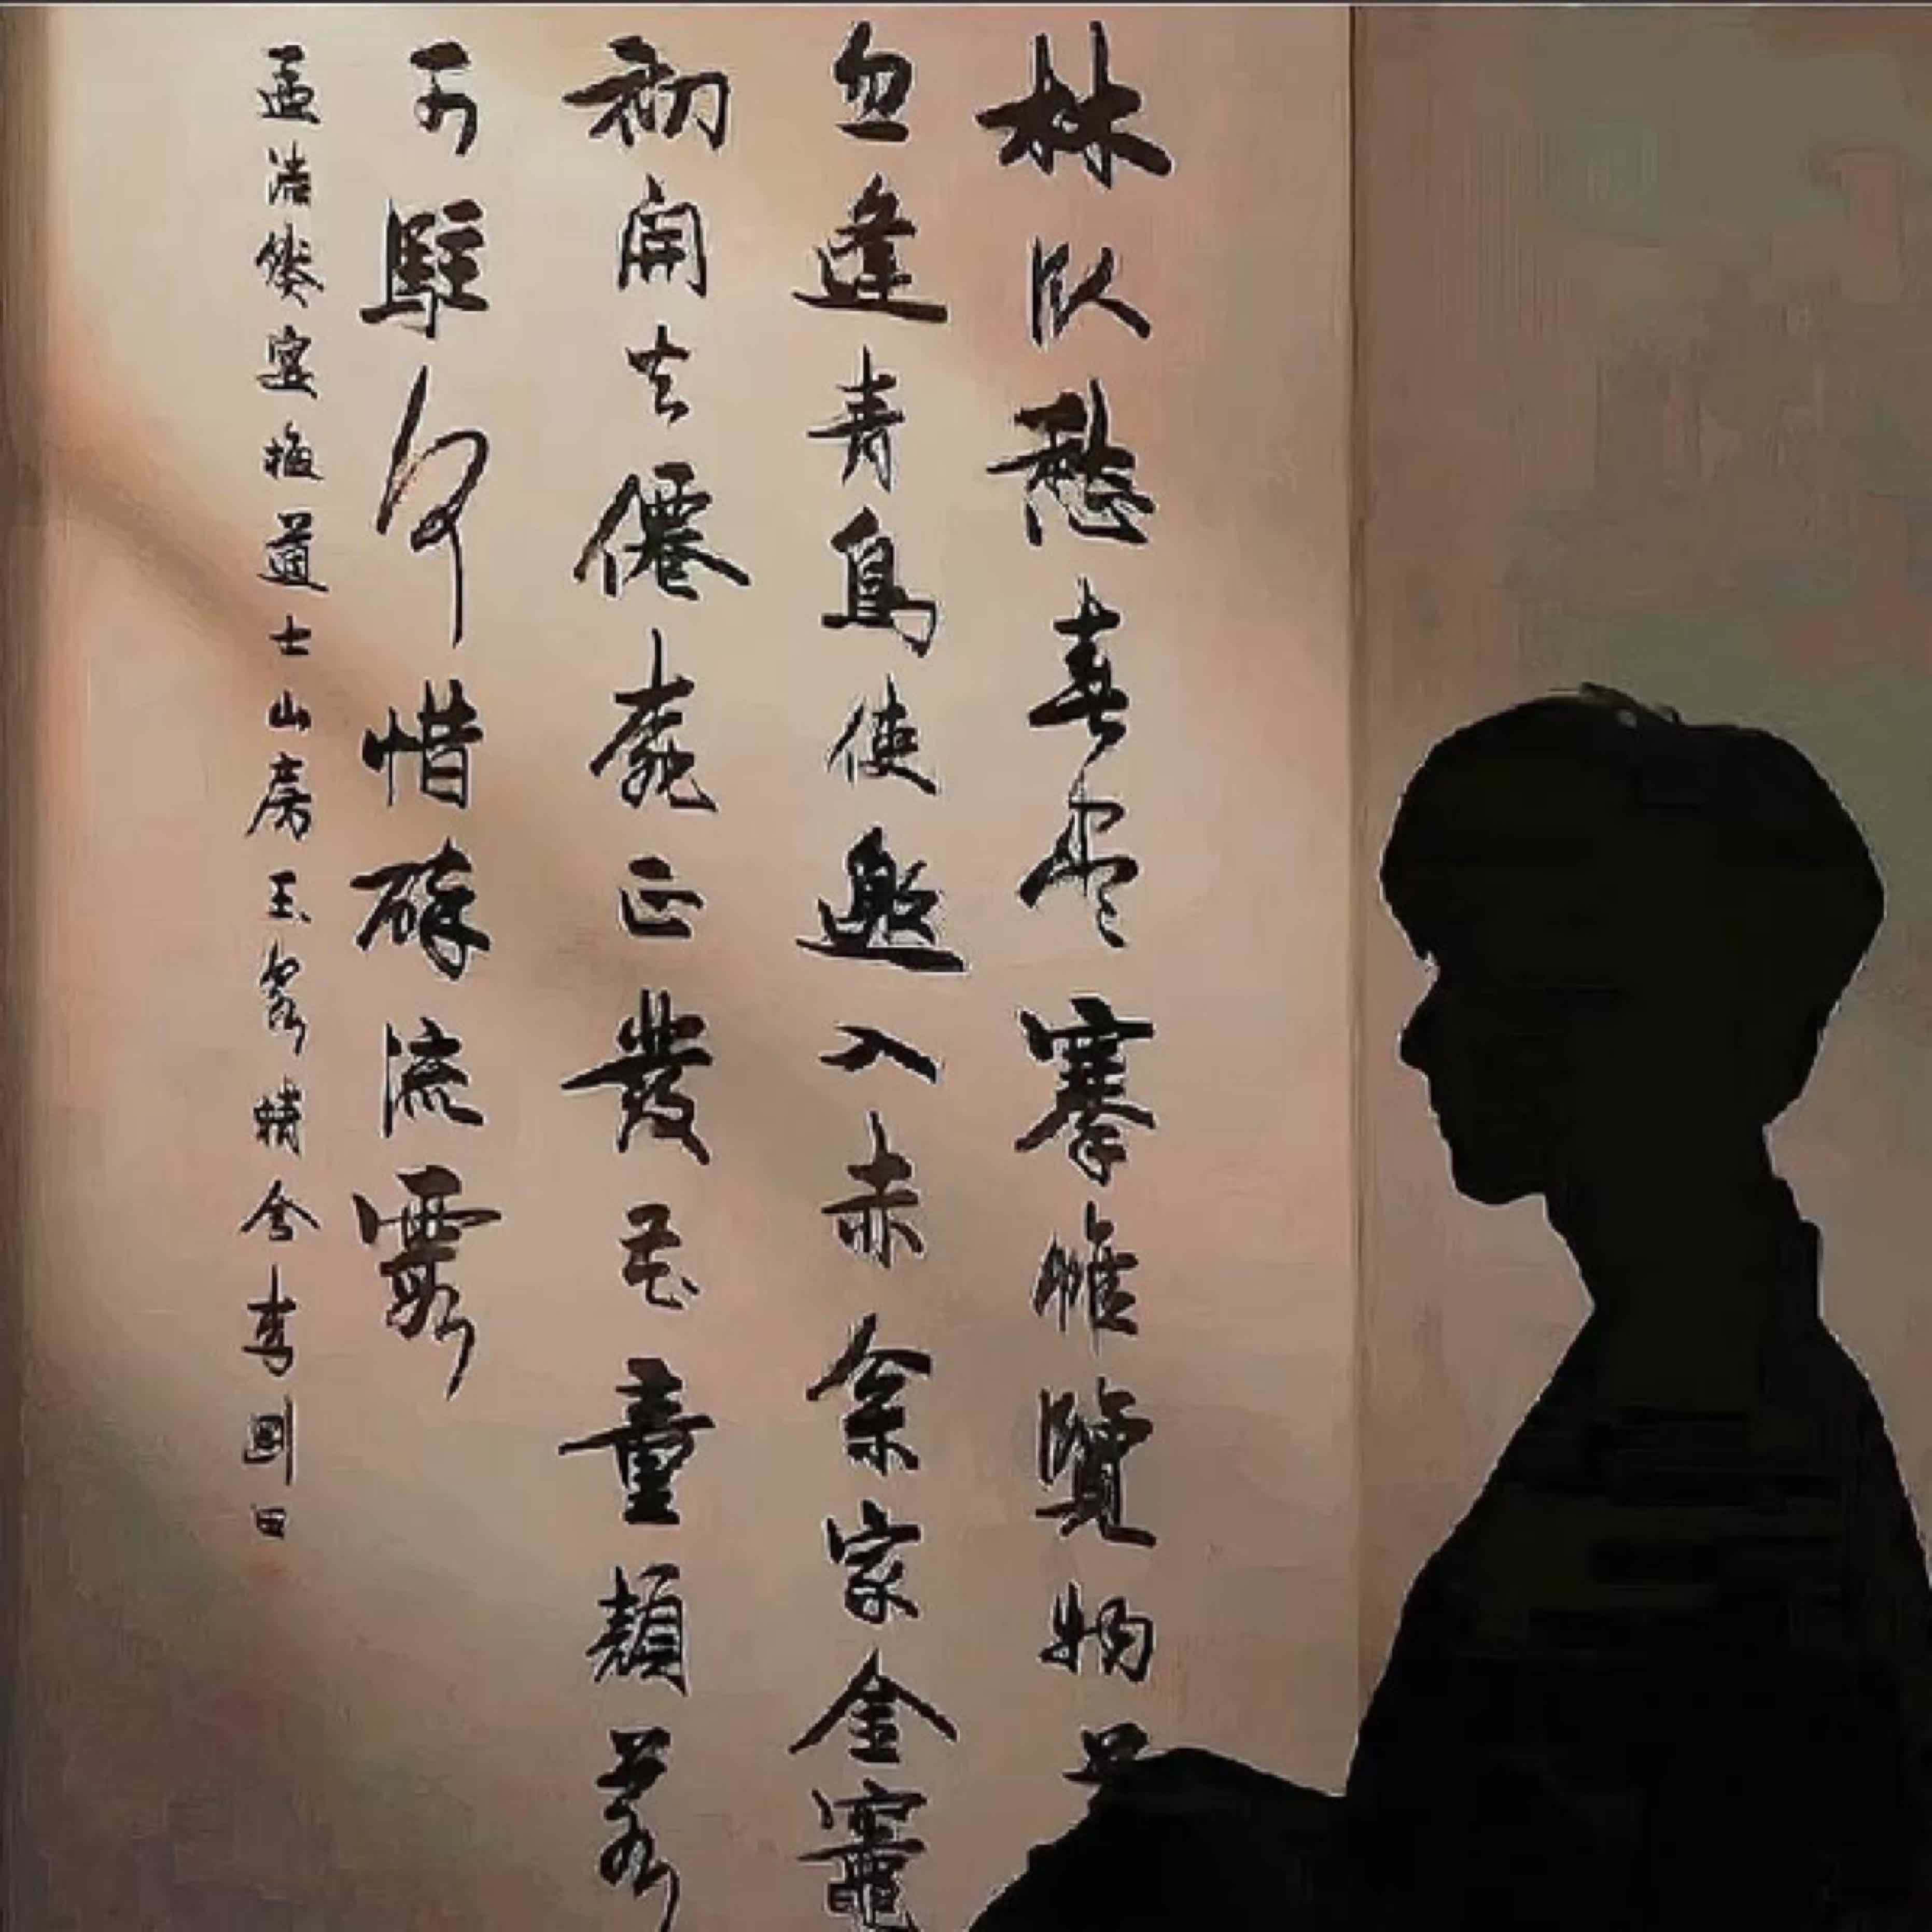 林臥愁春尽搴帷覽物
忽逢青鳥使邀入赤枩家金竈
初開火僊桃正發花童顏若
可駐何惜醉流霞
孟浩然宴梅道士山房玉精舍李國田